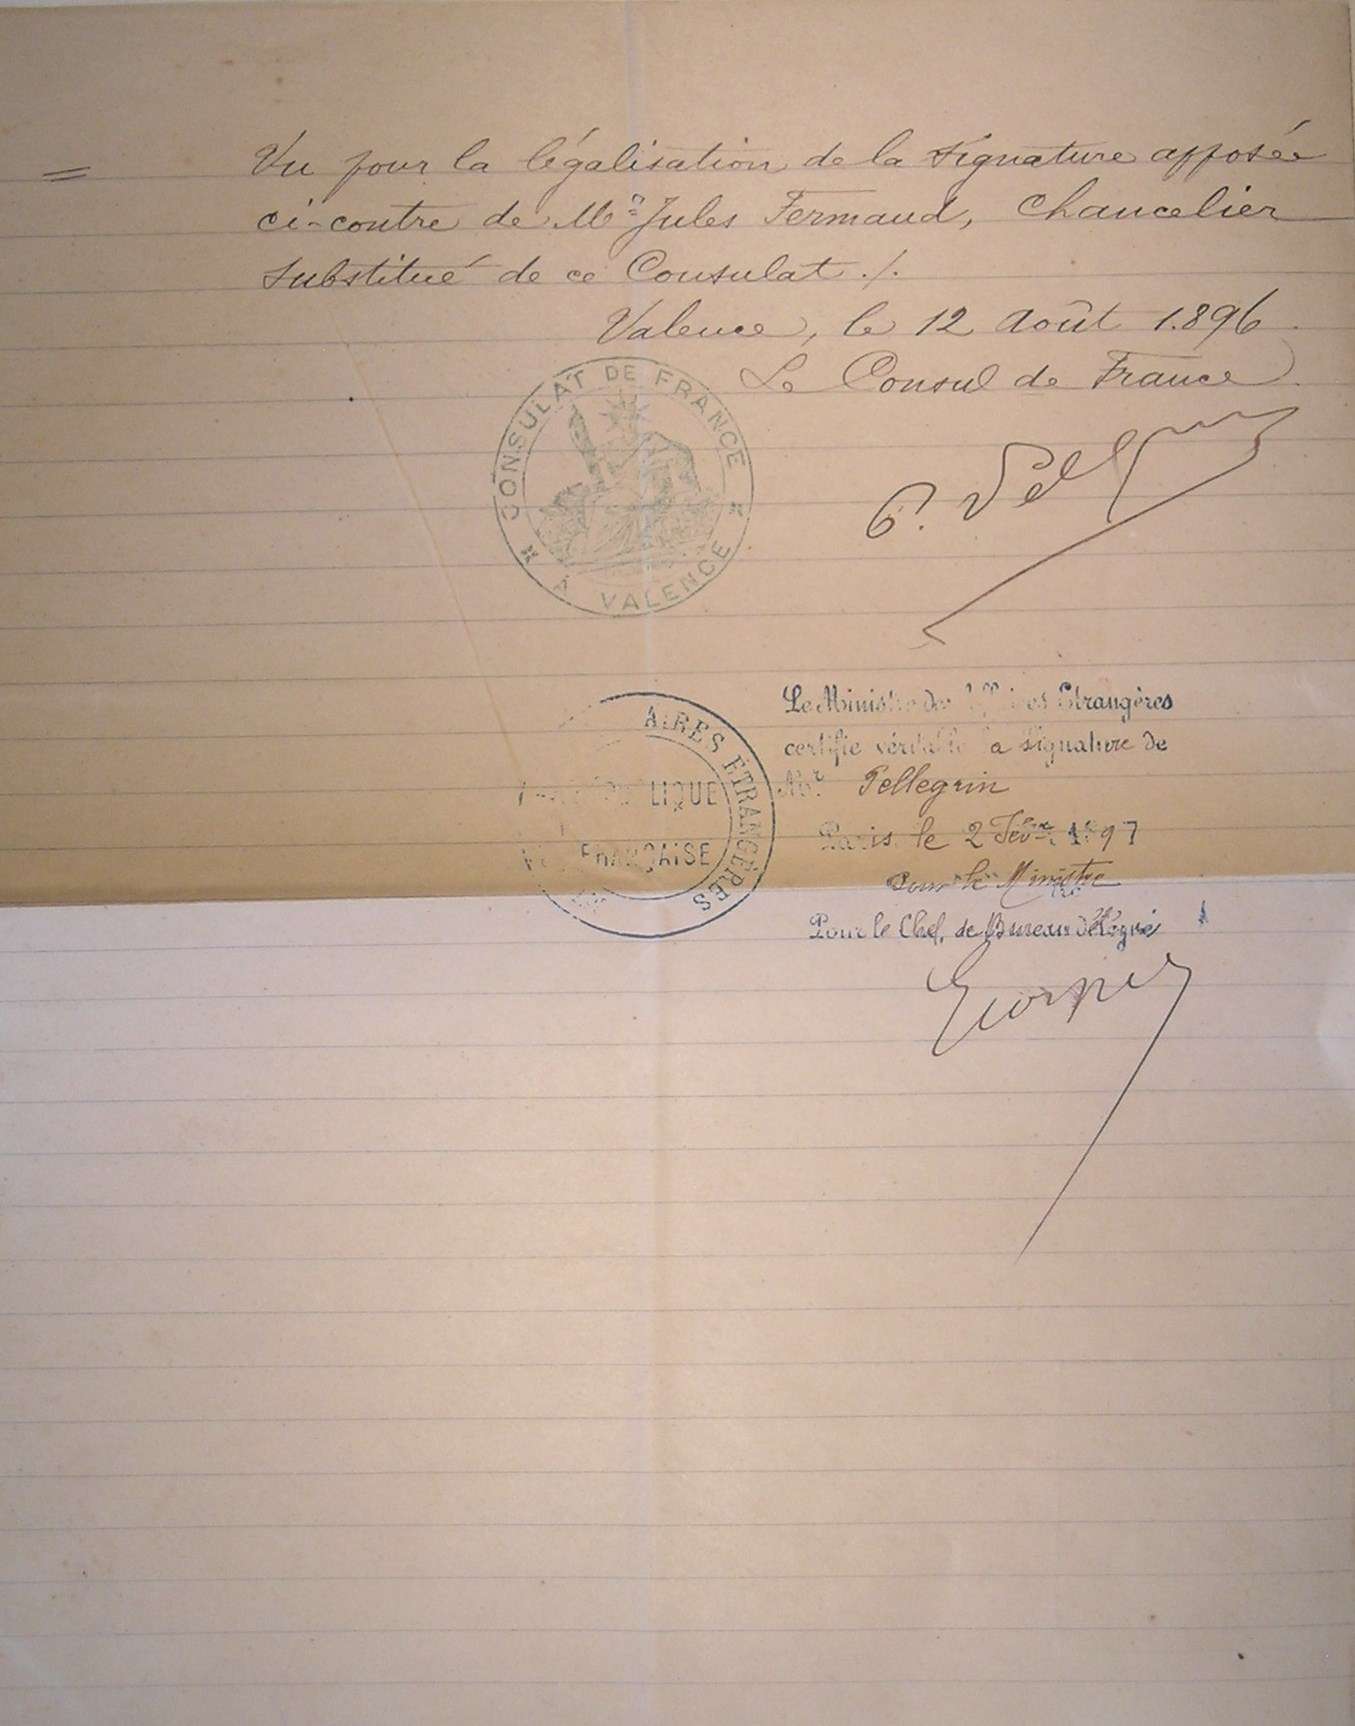 = Vu pour la légalisation de la signature apposée
ci-contre de Mr Jules Fermaud, Chancelier
substitué de ce Consulat ./.
Valence, le 12 Août 1.896
Le Consul de France
CONSULAT DE FRANCE
À VALENCE
Le Ministre des Affaires Etrangères
certifie véritable la signature de
Mr Pellegrin
Paris, le 2 Févr. 1897
Pour le Ministre
Pour le Chef de Bureau délégué
AIRES ÉTRANGÈRES
LIQUE
FRANÇAISE